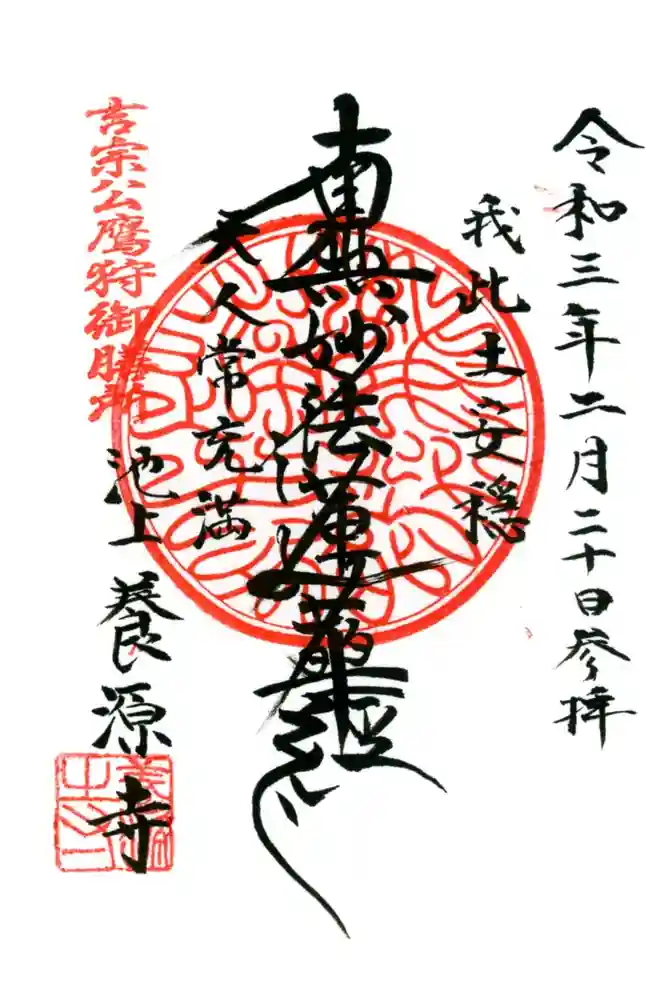 令和三年二月二十日参拝
我此土安穏
南無妙法蓮華經
天人常充満
吉宗公鷹狩御膳所
池上 養源寺